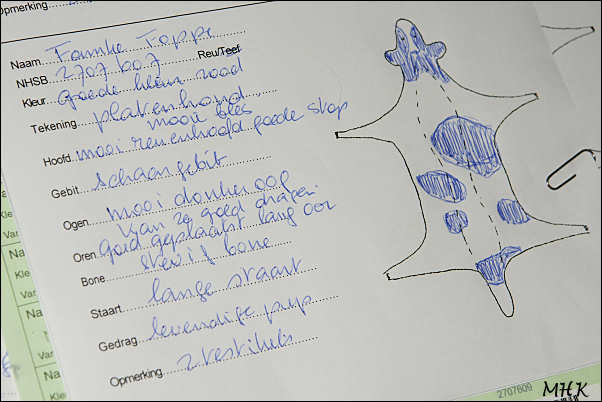 Opmerking
Naam Famke Toppe
NHSB 2707607 Reu/Teef
Kleur Goede kleur rood
Tekening platenhond
mooie bles
Hoofd mooi reuenhoofd goede stop
Gebit schaargebit
Ogen mooi donker oog
kan ze goed dragen
Oren Goed geplaatst lang oor
Bone stevig bone
Staart lange staart
Gedrag levendige pup
Opmerking 2 testikels
Na
Kle
Var
Na
Kle
Var
Na
Kle
Var
2707609
MHK